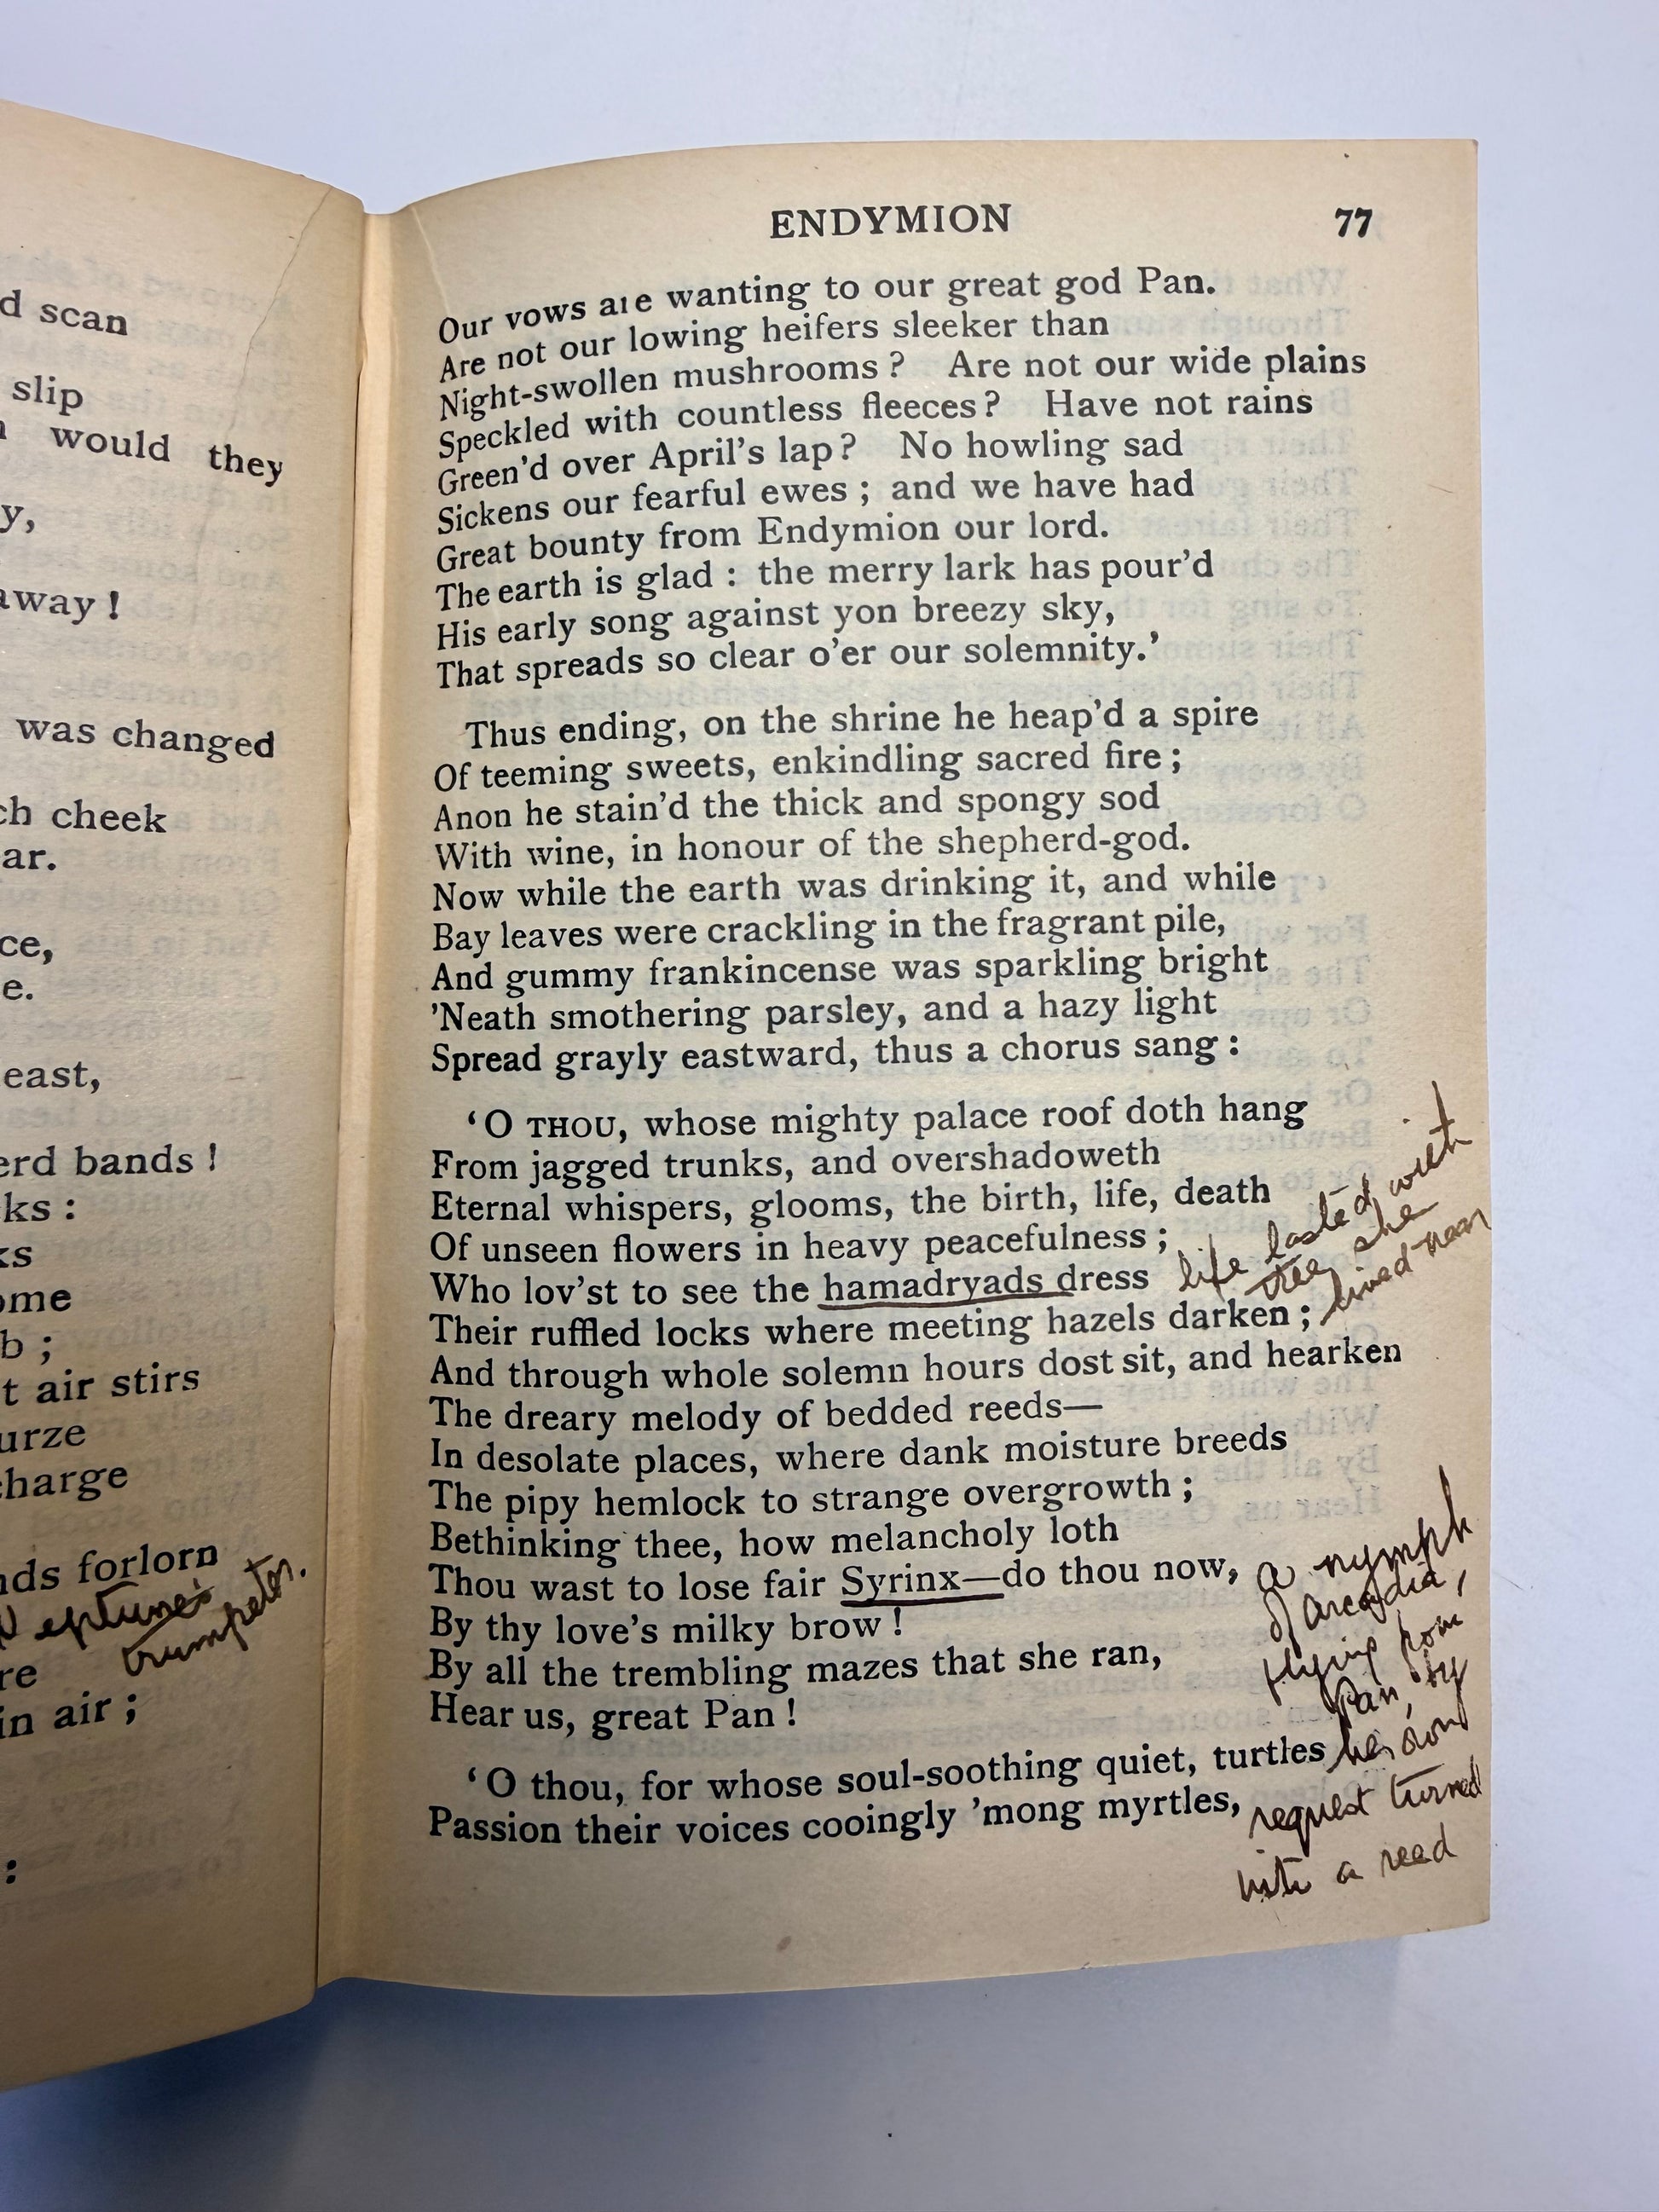 d scan
slip
would they
y,
away !
was changed
ch cheek
ar.
ce,
e.
east,
erd bands !
ks :
ks
ome
b ;
t air stirs
urze
charge
nds forlorn
Neptune's
trumpeter.
re
in air ;
:
ENDYMION 77
Our vows are wanting to our great god Pan.
Are not our lowing heifers sleeker than
Night-swollen mushrooms ? Are not our wide plains
Speckled with countless fleeces ? Have not rains
Green'd over April's lap ? No howling sad
Sickens our fearful ewes ; and we have had
Great bounty from Endymion our lord.
The earth is glad : the merry lark has pour'd
His early song against yon breezy sky,
That spreads so clear o'er our solemnity.'
Thus ending, on the shrine he heap'd a spire
Of teeming sweets, enkindling sacred fire ;
Anon he stain'd the thick and spongy sod
With wine, in honour of the shepherd-god.
Now while the earth was drinking it, and while
Bay leaves were crackling in the fragrant pile,
And gummy frankincense was sparkling bright
'Neath smothering parsley, and a hazy light
Spread grayly eastward, thus a chorus sang :
'O THOU, whose mighty palace roof doth hang
From jagged trunks, and overshadoweth
Eternal whispers, glooms, the birth, life, death
Of unseen flowers in heavy peacefulness ;
Who lov'st to see the hamadryads dress
life lasted with
tree she
lived near
Their ruffled locks where meeting hazels darken ;
And through whole solemn hours dost sit, and hearken
The dreary melody of bedded reeds—
In desolate places, where dank moisture breeds
The pipy hemlock to strange overgrowth ;
Bethinking thee, how melancholy loth
Thou wast to lose fair Syrinx—do thou now,
By thy love's milky brow !
By all the trembling mazes that she ran,
Hear us, great Pan !
a nymph
of Arcadia,
flying from
Pan, by
her own
request turned
into a reed
'O thou, for whose soul-soothing quiet, turtles
Passion their voices cooingly 'mong myrtles,